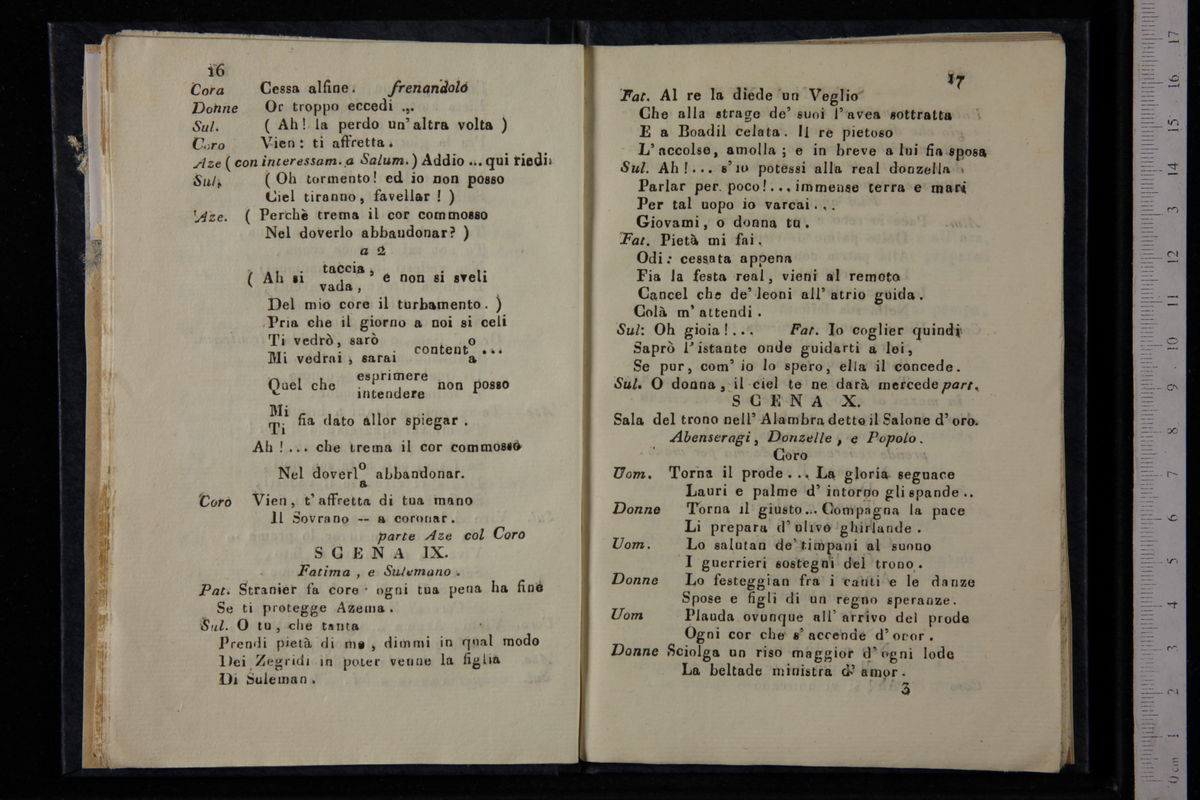 16
Cora Cessa alfine. frenandolo
Donne Or troppo eccedi ...
Sul. ( Ah! la perdo un' altra volta )
Coro Vien: ti affretta.
Aze ( con interessam. a Salum. ) Addio ... qui riedi
Sul. ( Oh tormento! ed io non posso
Ciel tiranno, favellar ! )
Aze. ( Perchè trema il cor commosso
Nel doverlo abbandonar? )
a 2
( Ah si taccia, e non si sveli
vada,
Del mio core il turbamento. )
Pria che il giorno a noi si celi
Ti vedrò, sarò contento ...
Mi vedrai, sarai a
Quel che esprimere non posso
intendere
Mi fia dato allor spiegar.
Ti
Ah ! ... che trema il cor commosso
Nel doverlo abbandonar.
a
Coro Vien, t' affretta di tua mano
Il Sovrano -- a coronar.
parte Aze col Coro
SCENA IX.
Fatima, e Sulemano.
Fat. Stranier fa core · ogni tua pena ha fine
Se ti protegge Azema.
Sul. O tu, che tanta
Prendi pietà di me, dimmi in qual modo
Dei Zegridi in poter venne la figlia
Di Suleman.
17
Fat. Al re la diede un Veglio
Che alla strage de' suoi l' avea sottratta
E a Boadil celata. Il re pietoso
L' accolse, amolla ; e in breve a lui fia sposa
Sul. Ah !... s' io potessi alla real donzella
Parlar per. poco!... immense terra e mari
Per tal uopo io varcai...
Giovami, o donna tu.
Fat. Pietà mi fai.
Odi: cessata appena
Fia la festa real, vieni al remoto
Cancel che de' leoni all' atrio guida.
Colà m' attendi.
Sul: Oh gioia!... Fat. Io coglier quindi
Saprò l' istante onde guidarti a lei,
Se pur, com' io lo spero, ella il concede.
Sul. O donna, il ciel te ne darà mercede part.
SCENA X.
Sala del trono nell' Alambra detto il Salone d' oro.
Abenseragi, Donzelle, e Popolo.
Coro
Uom. Torna il prode ... La gloria seguace
Lauri e palme d' intorno gli spande ..
Donne Torna il giusto... Compagna la pace
Li prepara d' ulivo ghirlande.
Uom. Lo salutan de' timpani al suono
I guerrieri sostegni del trono.
Donne Lo festeggian fra i canti e le danze
Spose e figli di un regno speranze.
Uom Plauda ovunque all' arrivo del prode
Ogni cor che s' accende d' onor.
Donne Sciolga un riso maggior d' ogni lode
La beltade ministra d' amor.
3